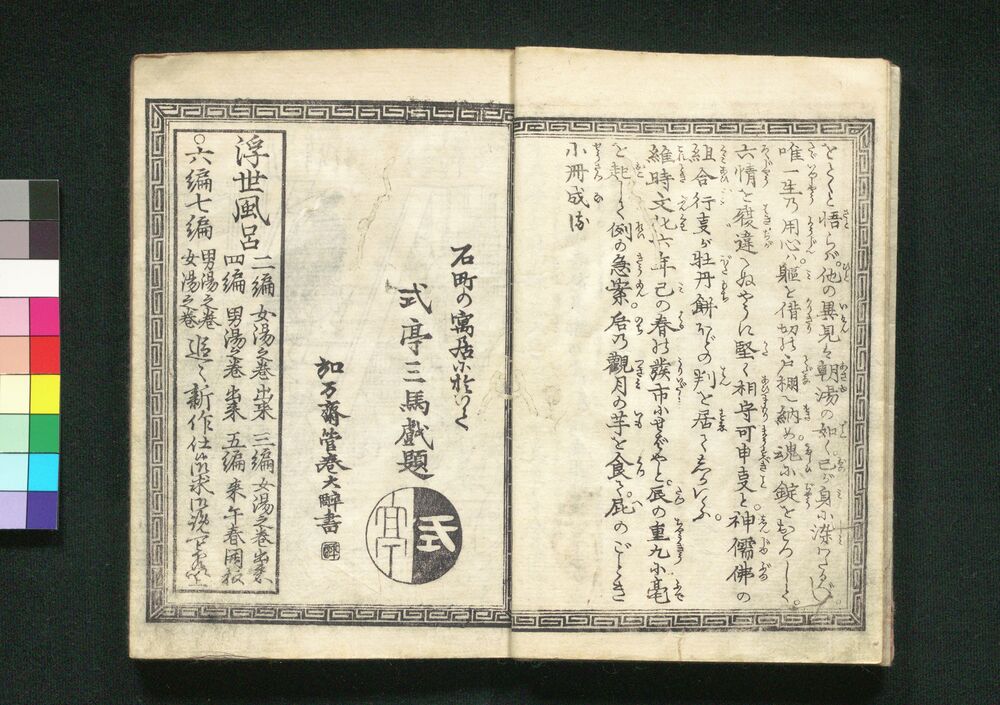 をとくと悟らば。他の異見は朝湯の如く。己が身に染わたるべし。
唯一生の用心は。躯を借切の戸棚へ納め。魂に錠をおろして。
六情を履違へぬやうに堅く相守可申事と。神儒佛の
組合行事が牡丹餅ほどの判を居て
維時文化六年。己の春の發市にせばやと。辰の重九に毫
を起して例の急案。后の觀月の芋を食て。屁のごとき
小冊成す
石町の寓居において
式亭三馬戯題
式亭
加万齋管巻大醉書
浮世風呂
二編 女湯之巻出来 三編 女湯之巻出来
四編 男湯之巻出来 五編 来午春
○六編七編 男湯之巻 女湯之巻 追々新作仕